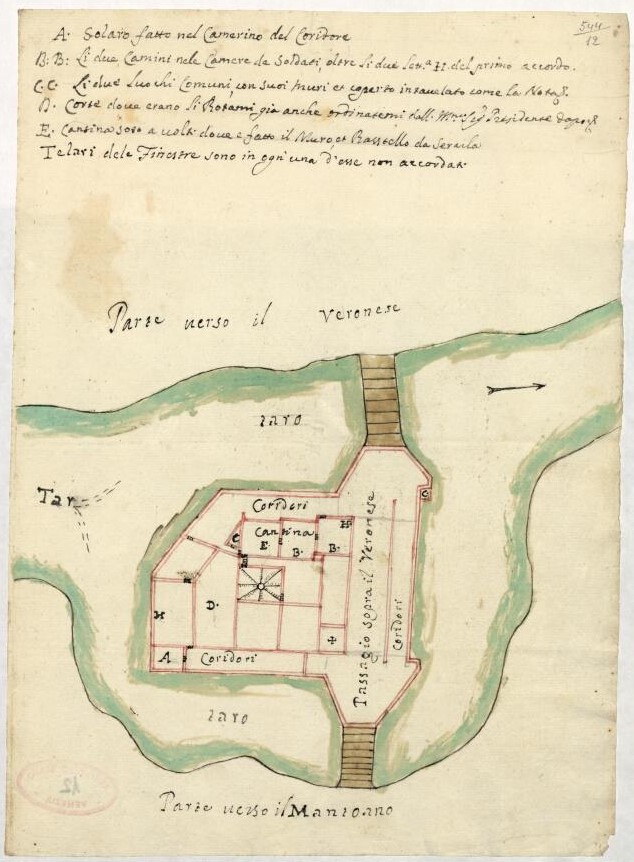 544
12
A. Solaro fatto nel Camerino del Coridore
B: B: Li due Camini nele Camere de Soldati, oltre li due letra H. del primo accordo.
C. C. Li due Luochi Comuni, con suoi muri et coperto intavulato come la Nota
D. Corte dove erano li Rotami già anche ordinatemi dall Sigr Presidente
E. Cantina soto a volti dove è fatto il Muro, et Rastello da Serarla
Telari dele Finestre sono in ogn'una d'esse non accordati
Parte verso il Veronese
taro
Tar
Corideri
C
C
Cantina
E.
B.
H
B.
D.
H
A
Corideri
Passagio sopra il Veronese
Corideri
taro
12
Parte verso il Mantoano